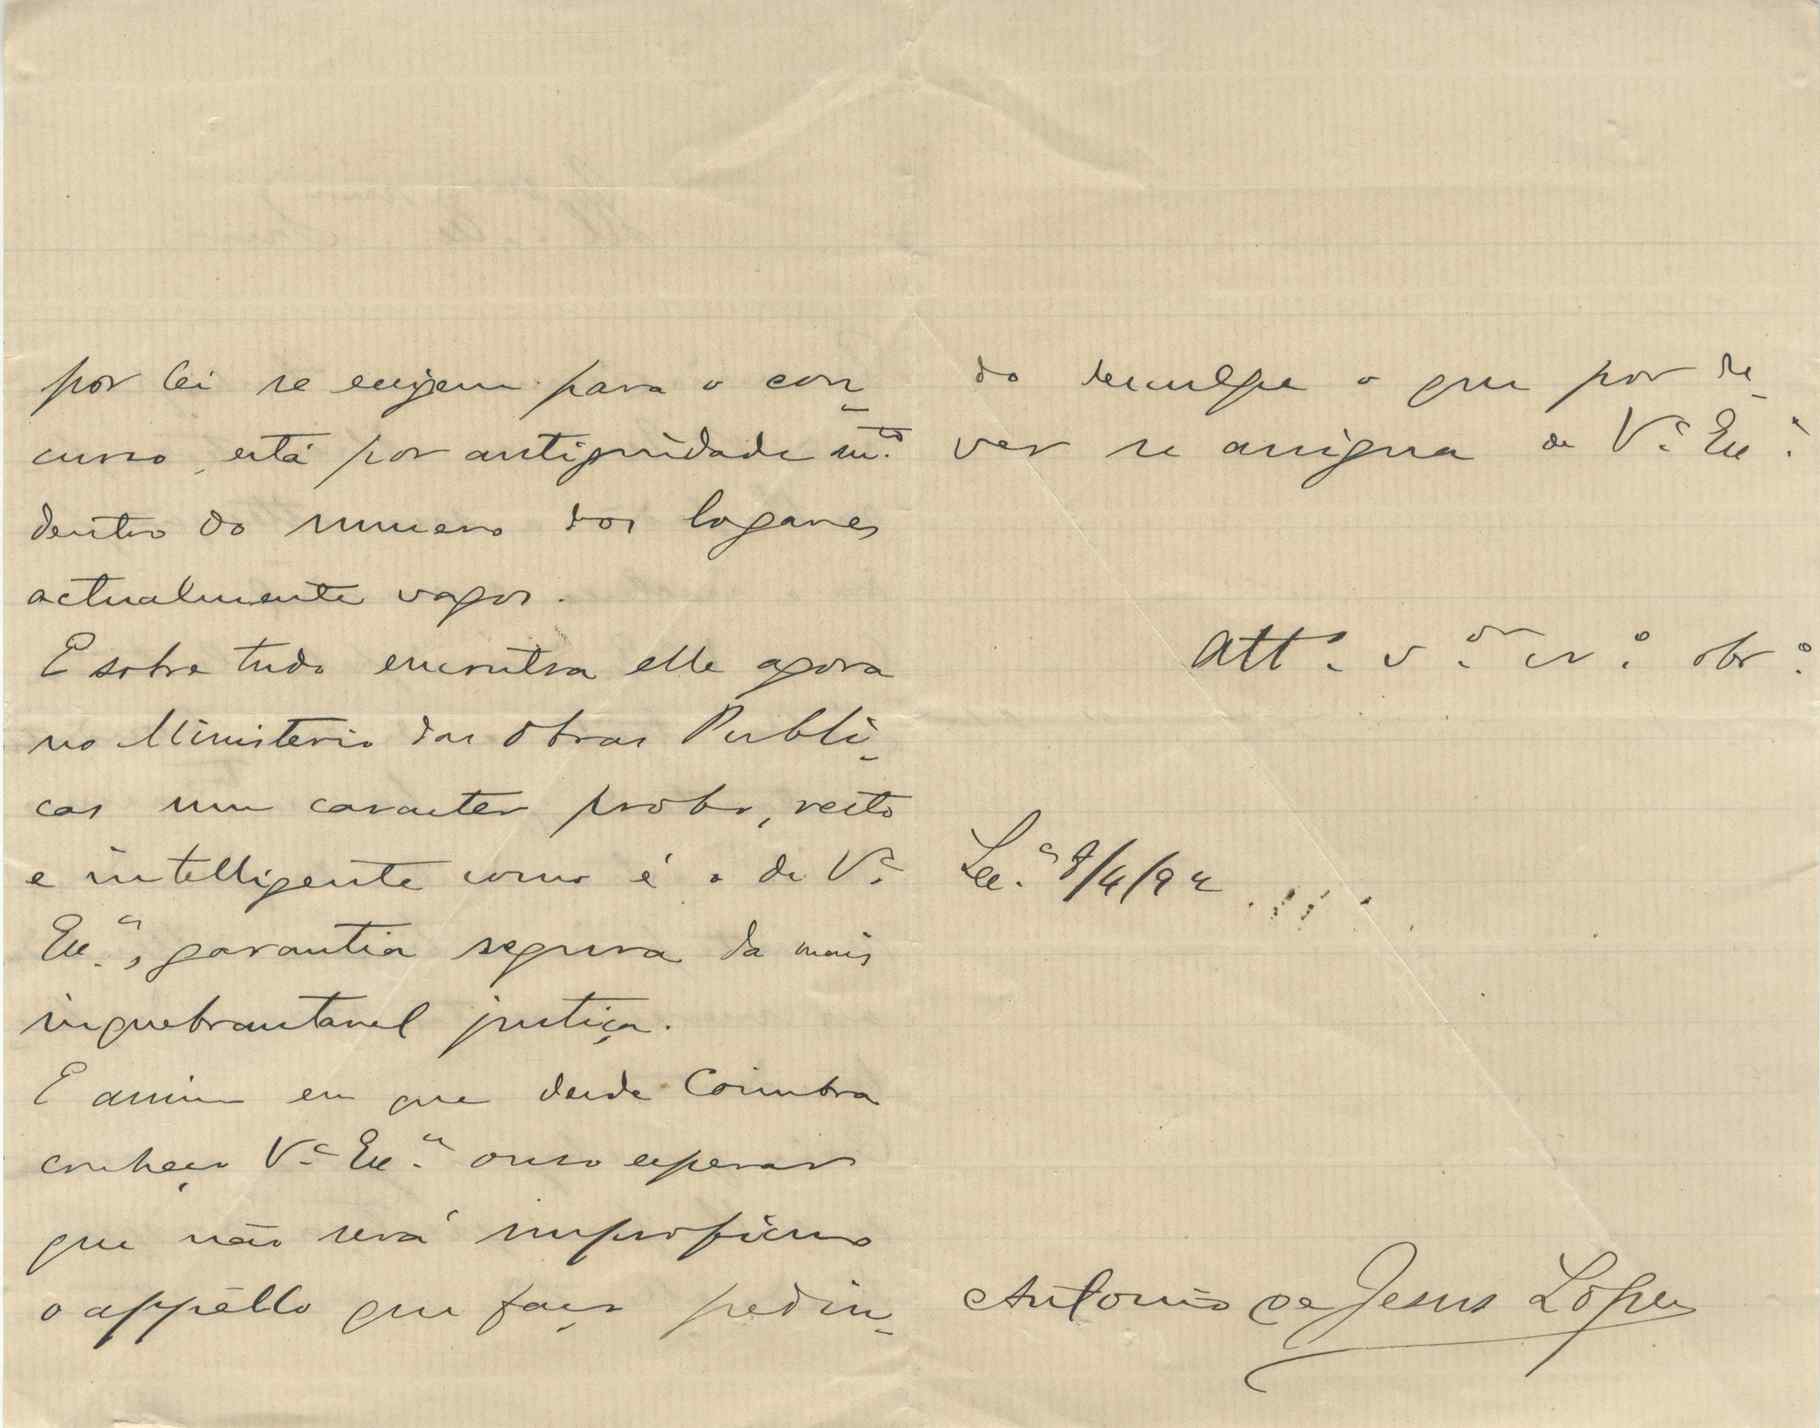 por lei se exijem para o con-
curso, está por antiguidade m.to
dentro do numero dos logares
actualmente vagos.
E sobre tudo encontra elle agora
no Ministerio das Obras Publi-
cas um caracter probo, recto
e intelligente como é o de V.a
Ex.a, garantia segura da mais
inquebrantavel justiça.
E assim eu que desde Coimbra
conheço V.a Ex.a ouso esperar
que não será improficuo
o appéllo que faço pedin-
do desculpe o que por de-
ver se assigna de V.a Ex.a
Att.o v.or cr.o obr.o
8/4/92
Antonio de Jesus Lopes